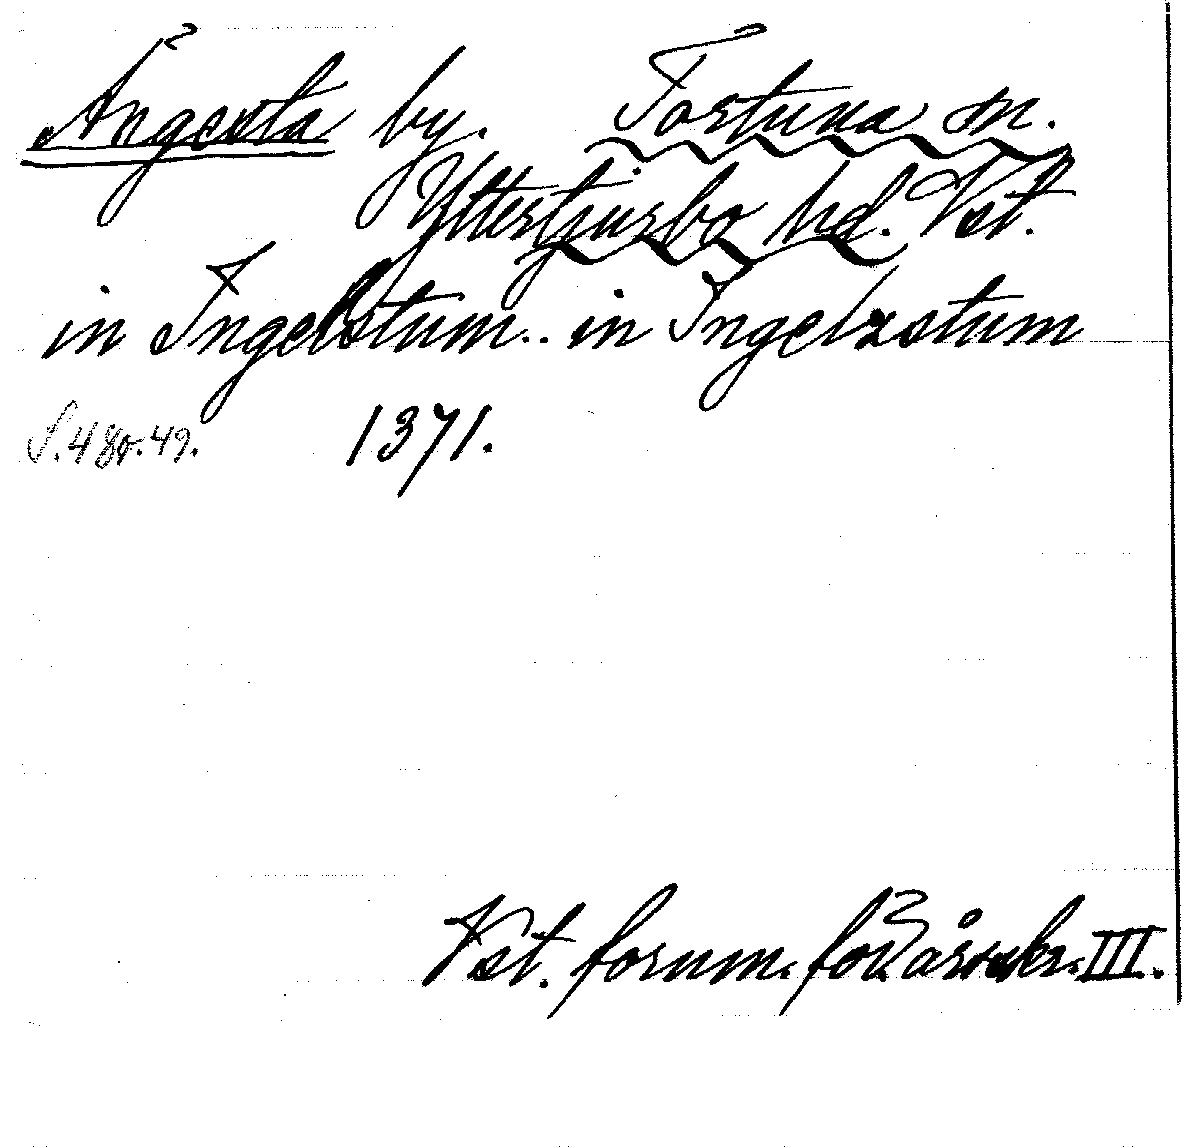 Ängesta by. Fortuna sn.
Yttertjurbo hd. Vst.
in Ingelstum.. in Ingelzstum
1371.
Vst. fornm. för. årsskr. III.